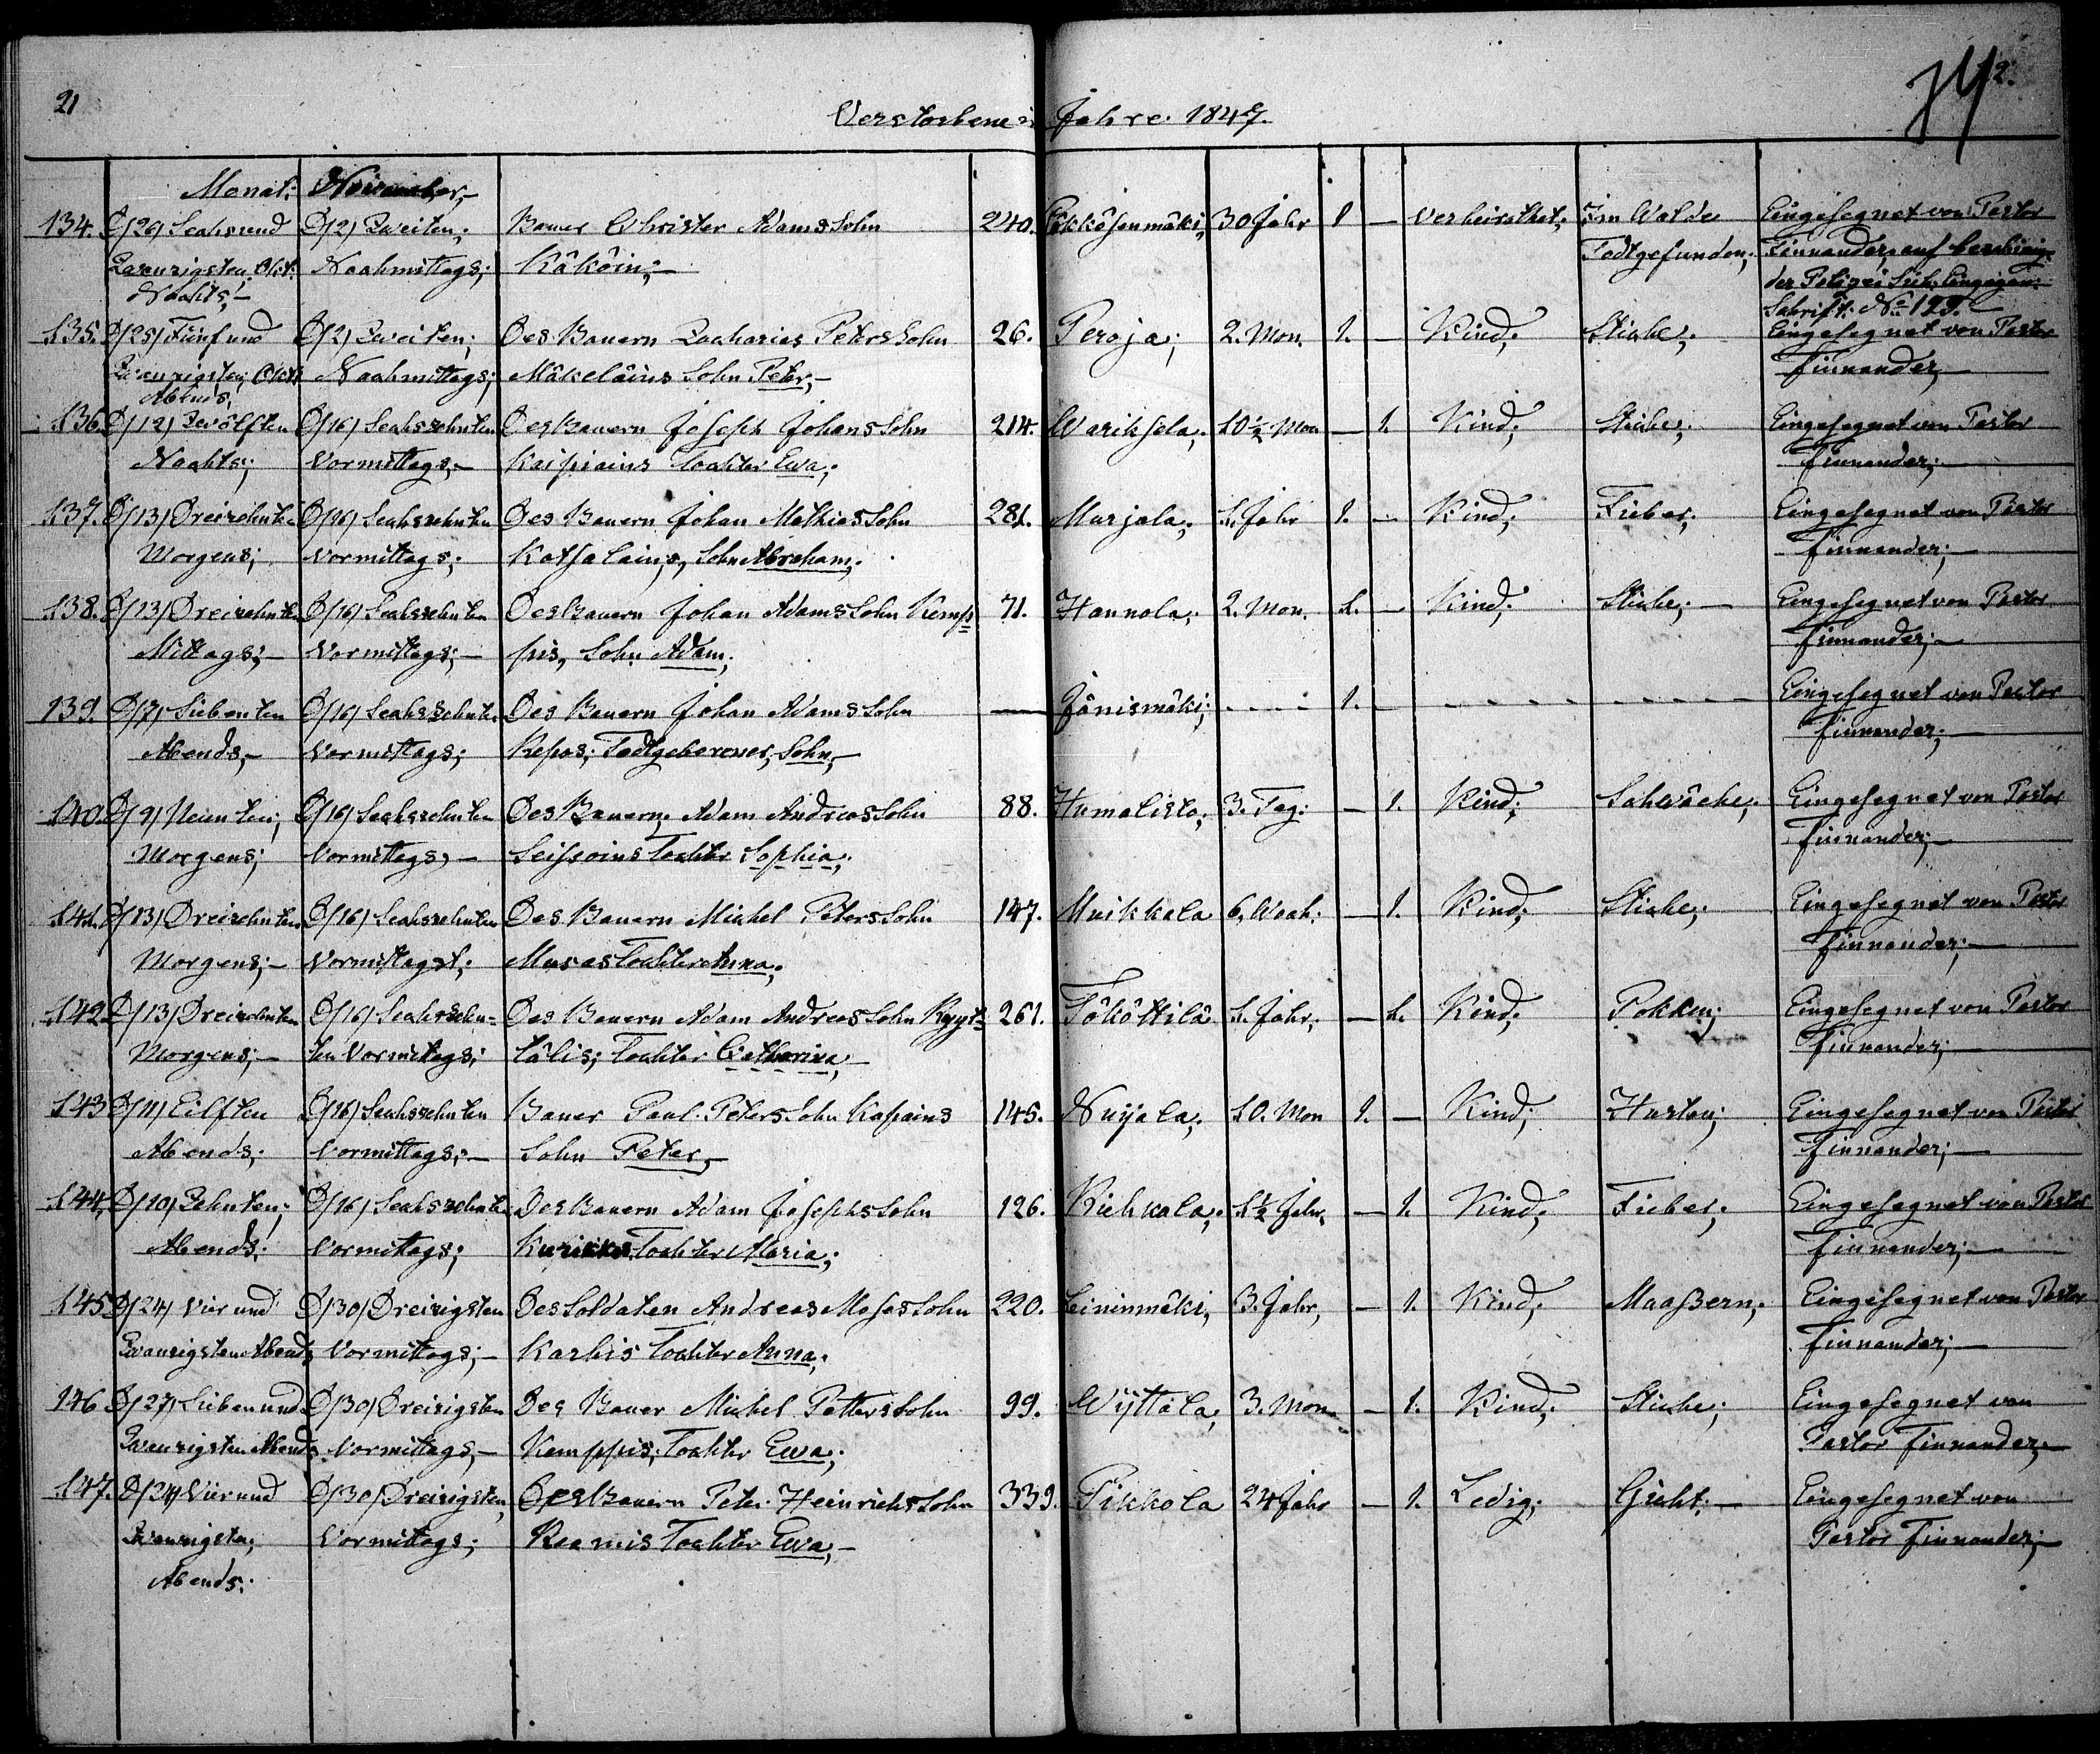 21
Verstorbene Jahre. 1847.
2.
Monat: November,
134. D/26/ Sechsund D/2/ Zweiten; Bauer Christer Adams Sohn 240. 30 Jahr 1 — Verheirathet; Im Walde Eingesegnet von Pastor
Zwanzigsten Okt: Nachmittags; Käköin; — Todtgefunden; Finnander, auf
Nachts; — der Polizei
Schrift: No 129.
135. D/25/ Fünf und D/2/ Zweiten; Des Bauern Zacharias Peters Sohn 26. Peroja; 2. Mon. 1. — Kind; Stiche; Eingesegnet von Pastor
Zwanzigsten; Okt: Nachmittags; Mäkeläins Sohn Peter, — Finnander,
Abends;
136. D/12/ Zwölften D/16/ Sechszehnten Des Bauern Joseph Johans Sohn 214. Wariksela; 10 1/2 Mon — 1. Kind; Stiche; Eingesegnet von Pastor
Nachts; Vormittags; — Kaipiains Tochter Ewa; Finnander; —
137. D/13/ Dreizehnten D/16/ Sechszehnten Des Bauern Johan Mathias Sohn 281. Murjala; 1. Jahr 1. — Kind; Fieber; Eingesegnet von Pastor
Morgens; Vormittags; Katsalains, Sohn Abraham; Finnander; —
138. D/13/ Dreizehnten D/16/ Sechszehnten Des Bauern Johan Adams Sohn Kemp= 71. Hannola; 2. Mon. 1. — Kind; Stiche; — Eingesegnet von Pastor
Mittags; — Vormittags; — pis, Sohn Adam; Finnander; —
139. D/7/ Siebenten D/16/ Sechszehnten Des Bauern Johan Adams Sohn — Jänismäki; 1. — Eingesegnet von Pastor
Abends, — Vormittags; Repos; Todtgeborener, Sohn, — Finnander; —
140. D/9/ Neunten; D/16/ Sechszehnten Des Bauern, Adam Andreas Sohn 88. Humalisto; 3. Tag: — 1. Kind; Schwäche; Eingesegnet von Pastor
Morgens; Vormittags, — Seissoins Tochter Sophia; Finnander; —
141. D/13/ Dreizehnten D/16/ Sechszehnten Des Bauern Michel Peters Sohn 147. Muikkala 6, Woch: — 1. Kind; Stiche; Eingesegnet von Pastor
Morgens; — Vormittagst; Musas Tochter Anna; Finnander; —
142 D/13/ Dreizehnten D/16/ Sechszehn= Des Bauern Adam Andreas Sohn Kyyt= 261. Tököttilä 1. Jahr; — 1. Kind; Pokken; Eingesegnet von Pastor
Morgens; — ten Vormittags; tälis; Tochter Catharina, — Finnander; —
143 D/11/ Eilften D/16/ Sechszehnten Bauer Paul. Peters Sohn Kapains 145. Nuijala; 10. Mon 1. — Kind; Husten; Eingesegnet von Pastor
Abends; Vormittags; — Sohn Peter, — Finnander; —
144, D/10/ Zehnten; D/16/ Sechszehnten Des Bauern Adam Josephs Sohn 126. 1 1/2 Jahr, — 1. Kind; Fieber; Eingesegnet von Pastor
Abends; Vormittags; Tochter Maria; Finnander; —
145 D/24/ Vier und D/30/ Dreizigsten Des Soldaten Andreas Moses Sohn 220. Leininmäki, 3. Jahr, — 1. Kind; Maaßern; Eingesegnet von Pastor
Zwanzigsten Abends Vormittags; — Karhis Tochter Anna; Finnander; —
146 D/27/ Sieben und D/30/ Dreizigsten Des Bauer Michel Petters Sohn 99. Wyttälä; 3. Mon — 1. Kind; Stiche; Eingesegnet von
Zwanzigsten Abends Vormittags, — Kemppis; Tochter Ewa; Pastor Finnander, —
147. D/24/ Vier und D/30/ Dreizigsten, Des Bauern Peter Heinrichs Sohn 339. Pikkola 24 Jahr — 1. Ledig; Gicht; — Eingesegnet von
Zwanzigsten; Vormittags; Tochter Ewa; — Pastor Finnander; —
Abends;